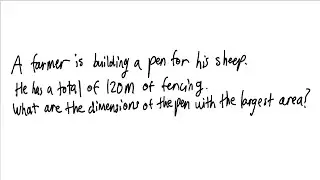 A farmer is building a pen for his sheep.
He has a total of 120m of fencing.
What are the dimensions of the pen with the largest area?